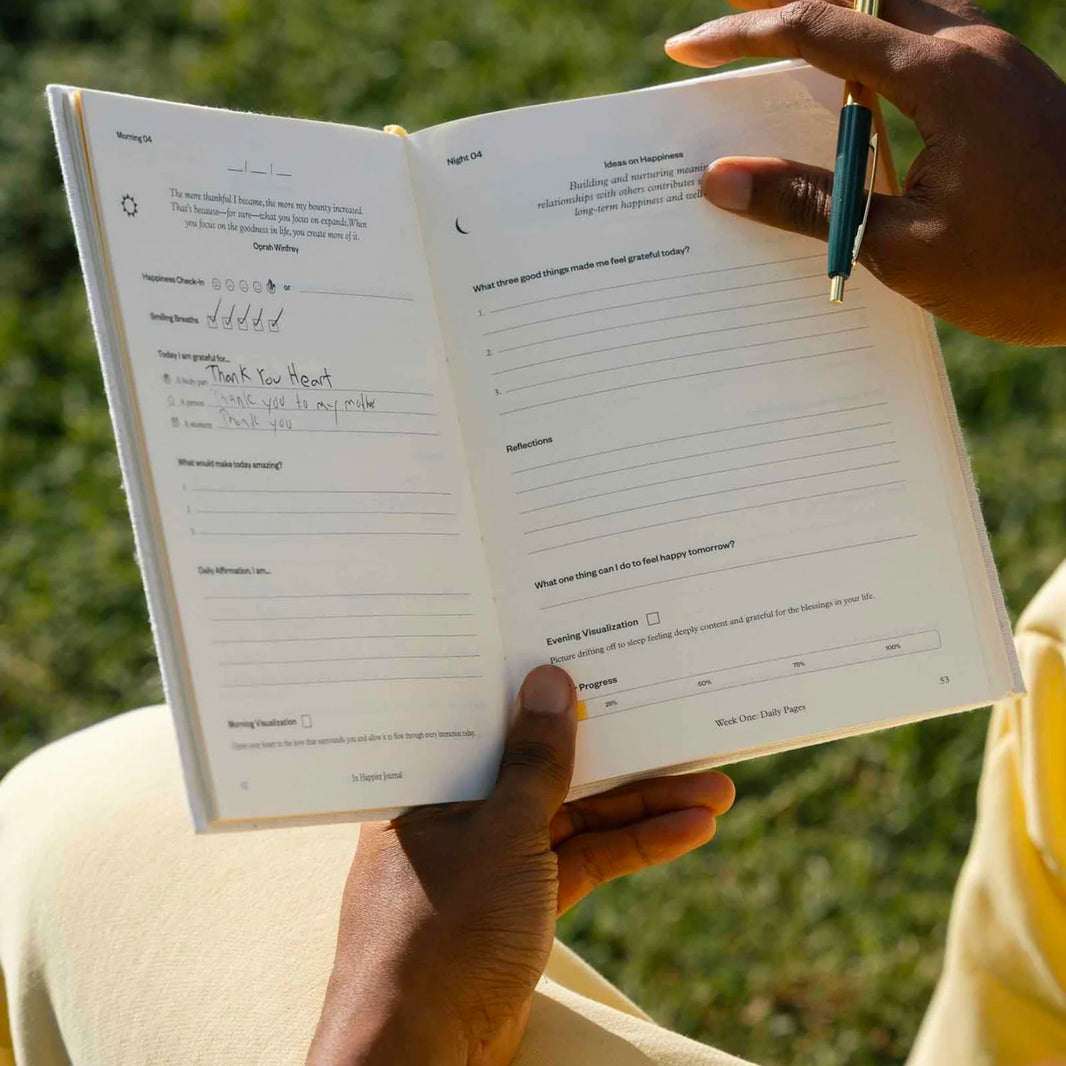 Morning 04
_|_|_
The more thankful I became, the more my bounty increased.
That's because—for sure—what you focus on expands. When
you focus on the goodness in life, you create more of it.
Oprah Winfrey
Happiness Check-in or
Smiling Breaths
Today I am grateful for...
A body part Thank You Heart
A person Thank you to my mother
A moment Thank you
What would make today amazing?
1.
2.
3.
Daily Affirmation. I am...
Morning Visualization
your heart to the love that surrounds you and allow it to flow through every interaction today.
3x Happier Journal
Night 04
Ideas on Happiness
Building and nurturing
relationships with others contributes
long-term happiness and
What three good things made me feel grateful today?
1.
2.
3.
Reflections
What one thing can I do to feel happy tomorrow?
Evening Visualization
Picture drifting off to sleep feeling deeply content and grateful for the blessings in your life.
Progress
25% 50% 75% 100%
Week One: Daily Pages
53